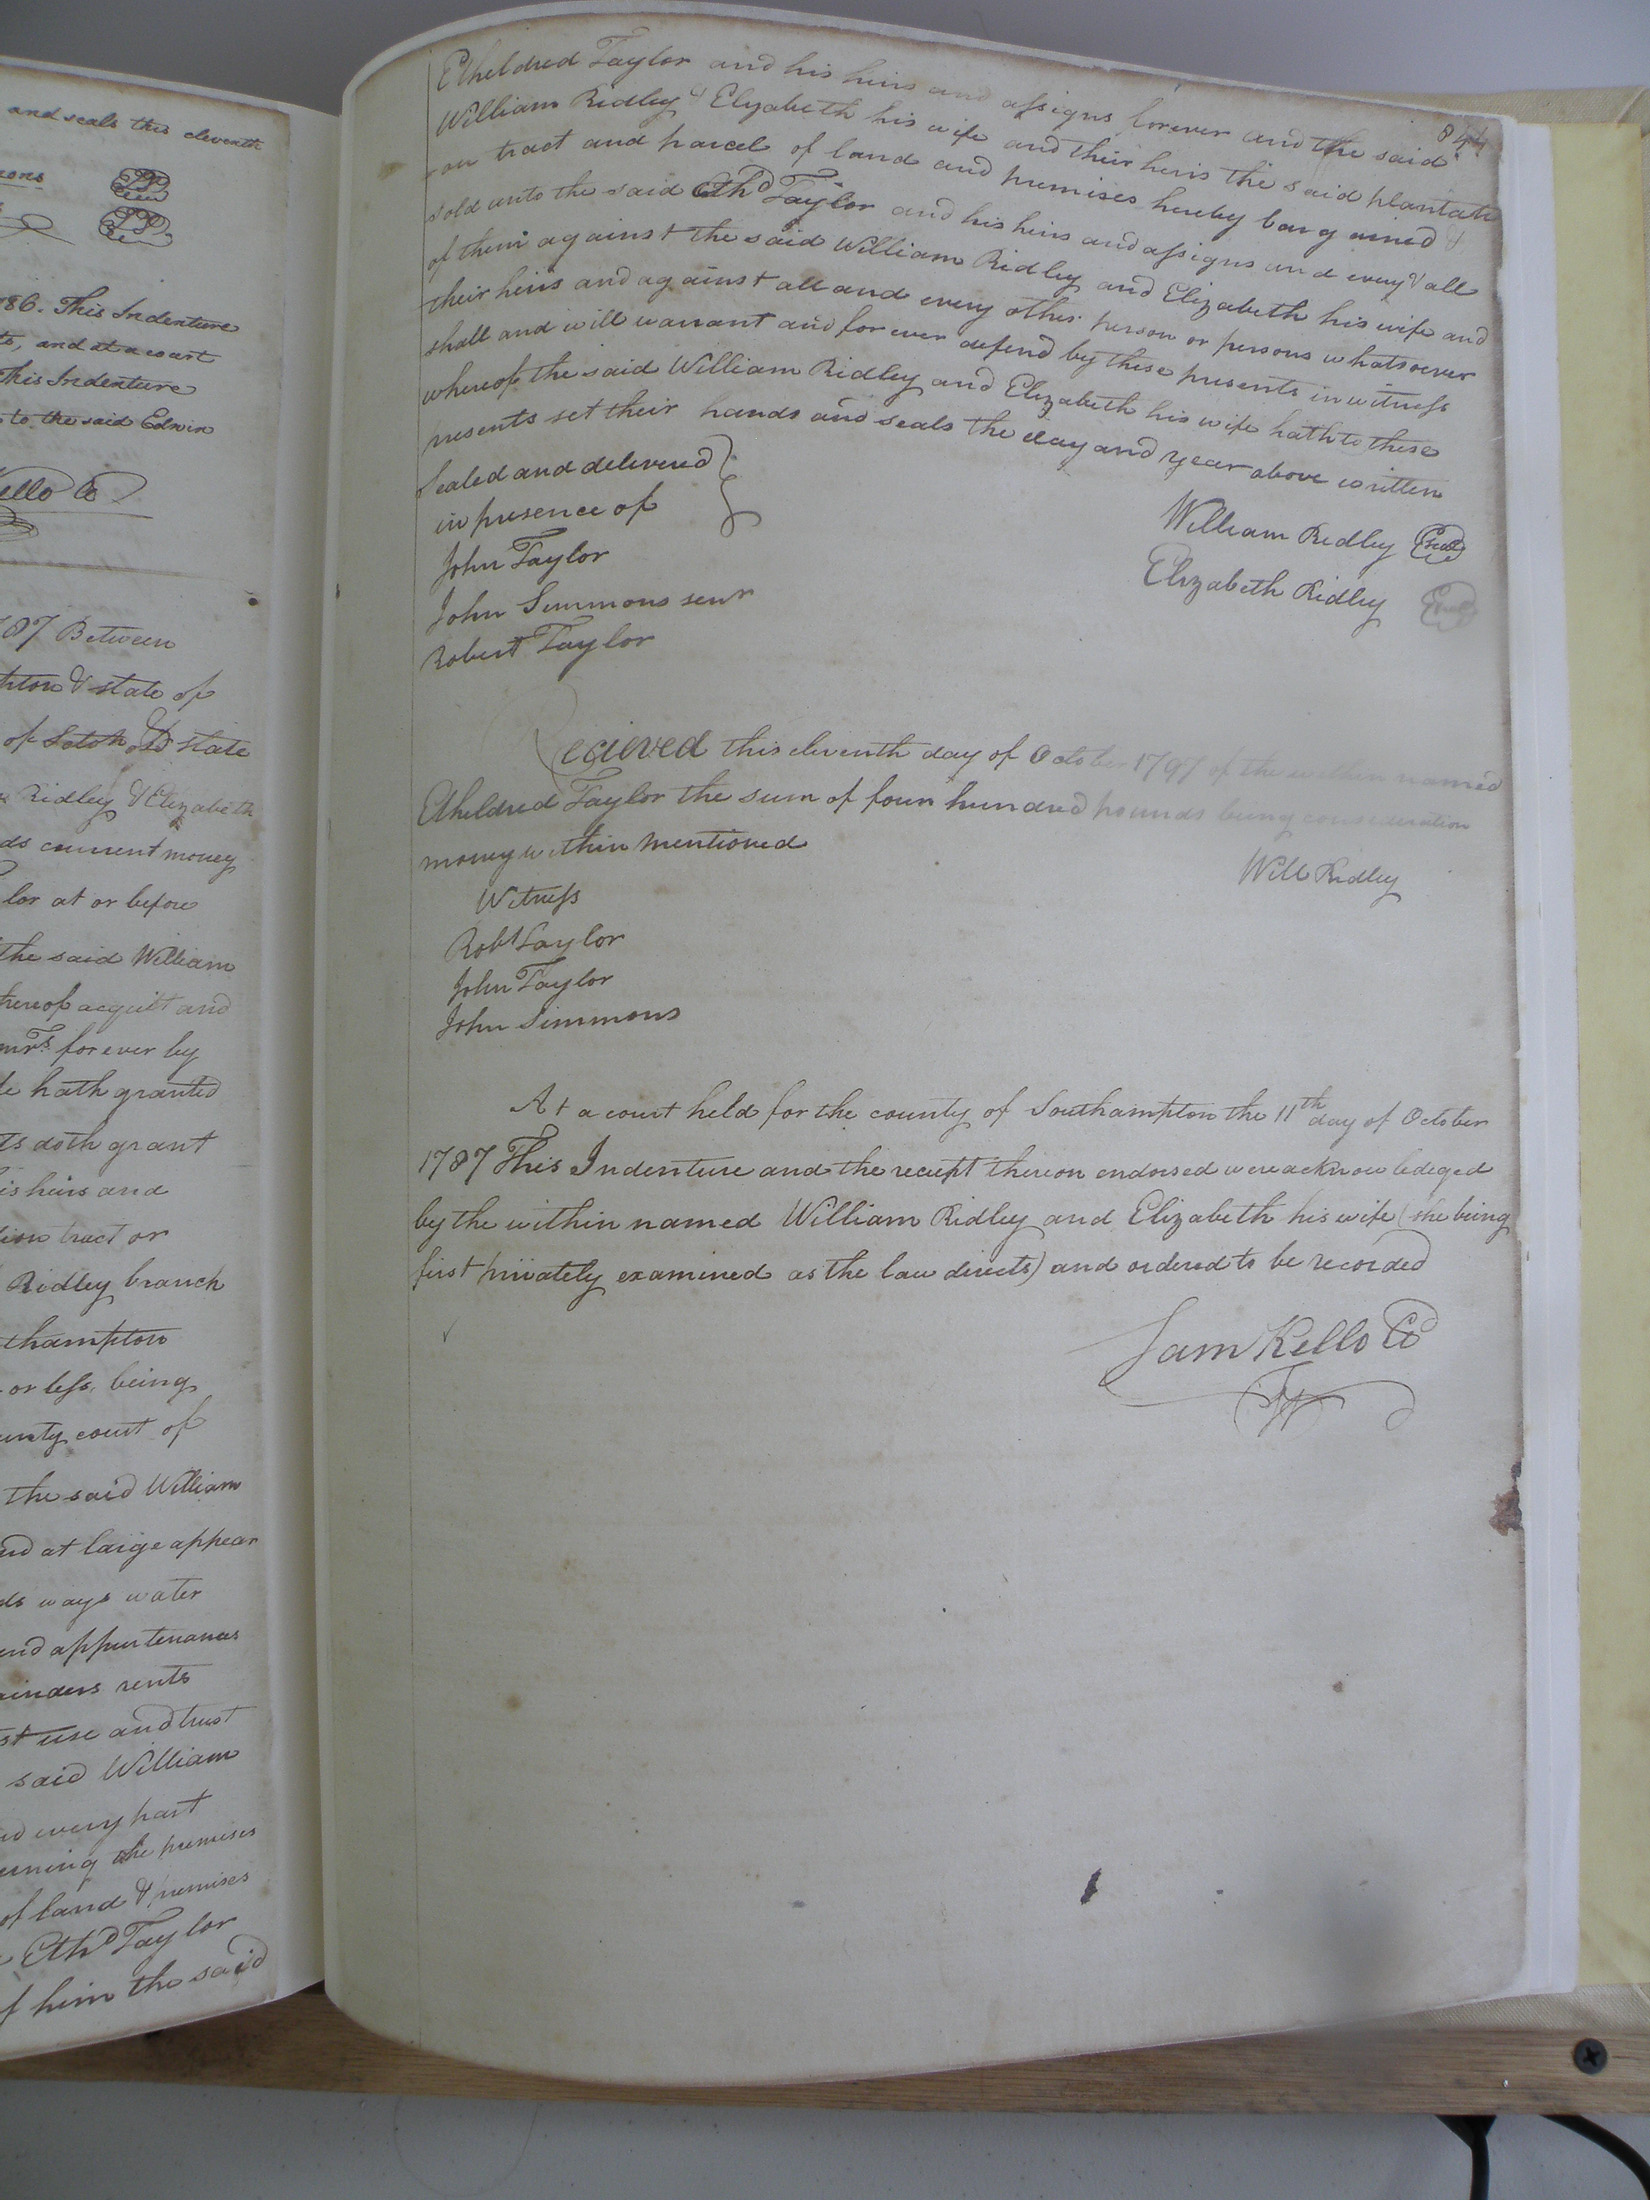 and seals this eleventh
86. This Indenture
and at a court
This Indenture
to the said Edwin
Kello Co
87 Between
hton & state of
of Soton & state
Ridley & Elizabeth
ds current money
lor at or before
the said William
hereof acquitt and
mrs. forever by
fe hath granted
ts doth grant
is heirs and
tion tract or
Ridley branch
thampton
or less, being
unty court of
the said William
nd at large appear
ds ways water
and appurtenances
ainders rents
st use and trust
said William
nd every part
erning the premises
of land & premises
Ethd Taylor
f him the said
844
Etheldred Taylor and his heirs and assigns forever and the said
William Ridley & Elizabeth his wife and their heirs the said plantati
on tract and parcel of land and premises hereby bargained &
sold unto the said Ethd Taylor and his heirs and assigns and every & all
of them against the said William Ridley and Elizabeth his wife and
their heirs and against all and every other person or persons whatsoever
shall and will warrant and for ever defend by these presents in witness
whereof the said William Ridley and Elizabeth his wife hath to these
presents set their hands and seals the day and year above written
Sealed and delivered
in presence of
William Ridley Seal
John Taylor
Elizabeth Ridley Seal
John Simmons senr
Robert Taylor
Recieved this eleventh day of October 1797 of the within named
Etheldred Taylor the sum of four hundred pounds being consideration
money within mentioned
Will Ridley
Witness
Robt Taylor
John Taylor
John Simmons
At a court held for the county of Southampton the 11th day of October
1787 This Indenture and the receipt thereon endorsed were acknowledeged
by the within named William Ridley and Elizabeth his wife (she being
first privately examined as the law directs) and ordered to be recorded
Sam Kello Co